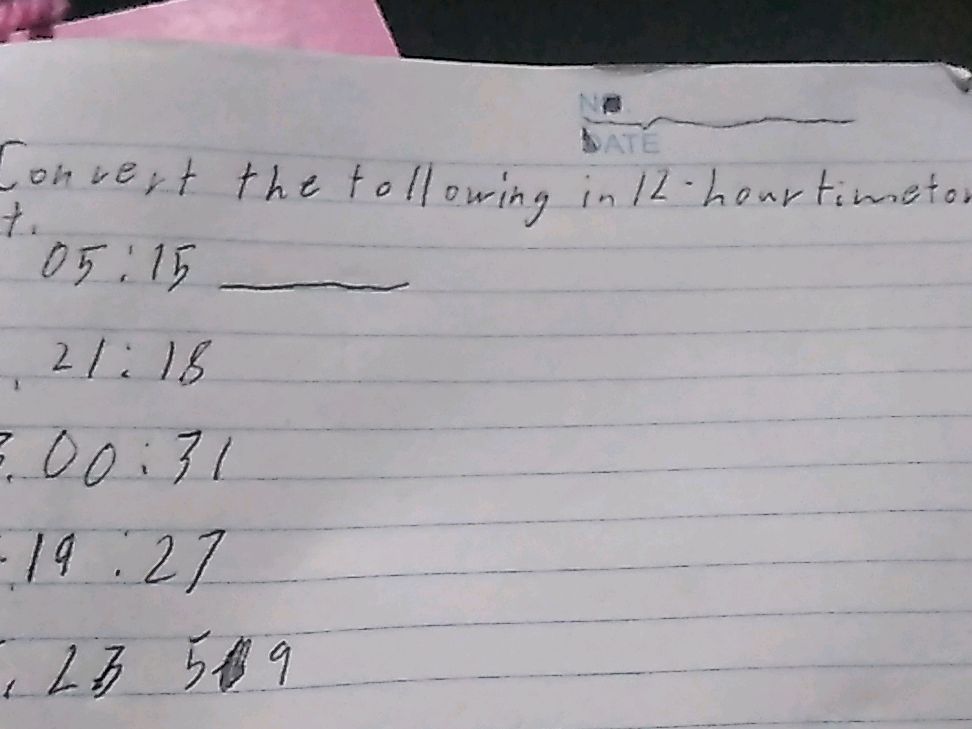 NO.
DATE
Convert the following in 12-hour time for
t.
05:15
. 21:18
3. 00:31
. 19:27
. 23 59